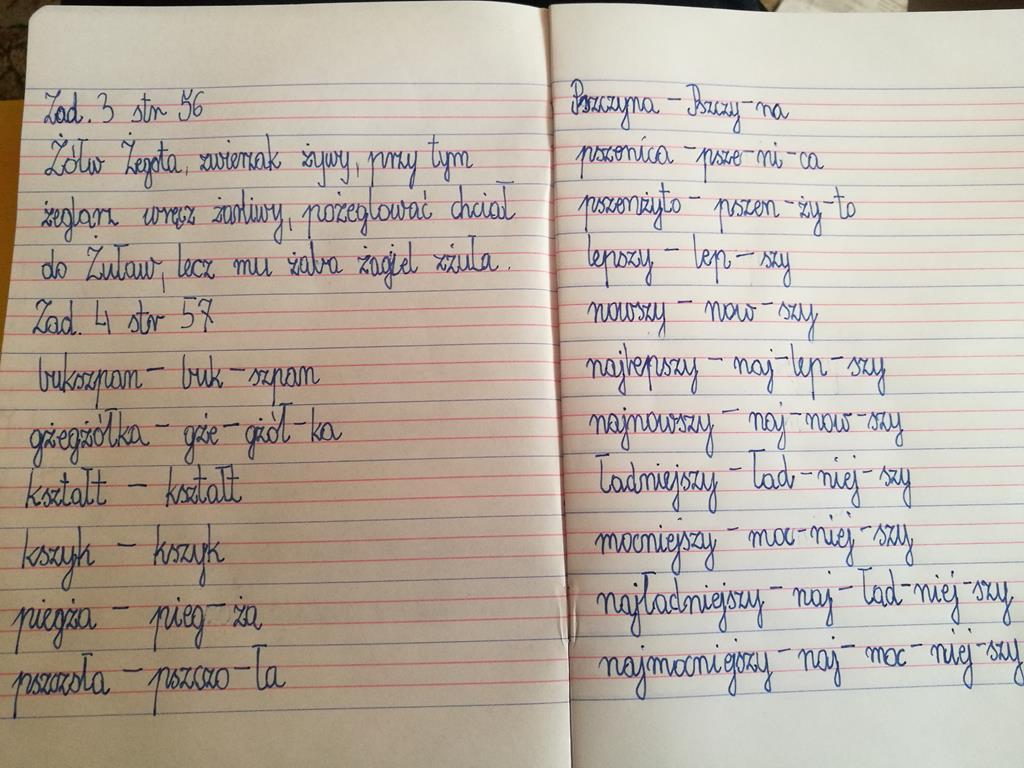 Zad. 3 str 56
Żółw Żegota, zwierzak żywy, przy tym
żeglarz wręcz żarliwy, pożeglować chciał
do Żuław, lecz mu żaba żagiel zżuła.
Zad. 4 str 57
bukszpan – buk – szpan
gżegżółka – gże – gżół – ka
kształt – kształt
kszyk – kszyk
piegża – pieg – ża
pszczoła – pszczo – ła
Pszczyna – Pszczy – na
pszenica – psze – ni – ca
pszenżyto – pszen – ży – to
lepszy – lep – szy
nowszy – now – szy
najlepszy – naj – lep – szy
najnowszy – naj – now – szy
ładniejszy – ład – niej – szy
mocniejszy – moc – niej – szy
najładniejszy – naj – ład – niej – szy
najmocniejszy – naj – moc – niej – szy